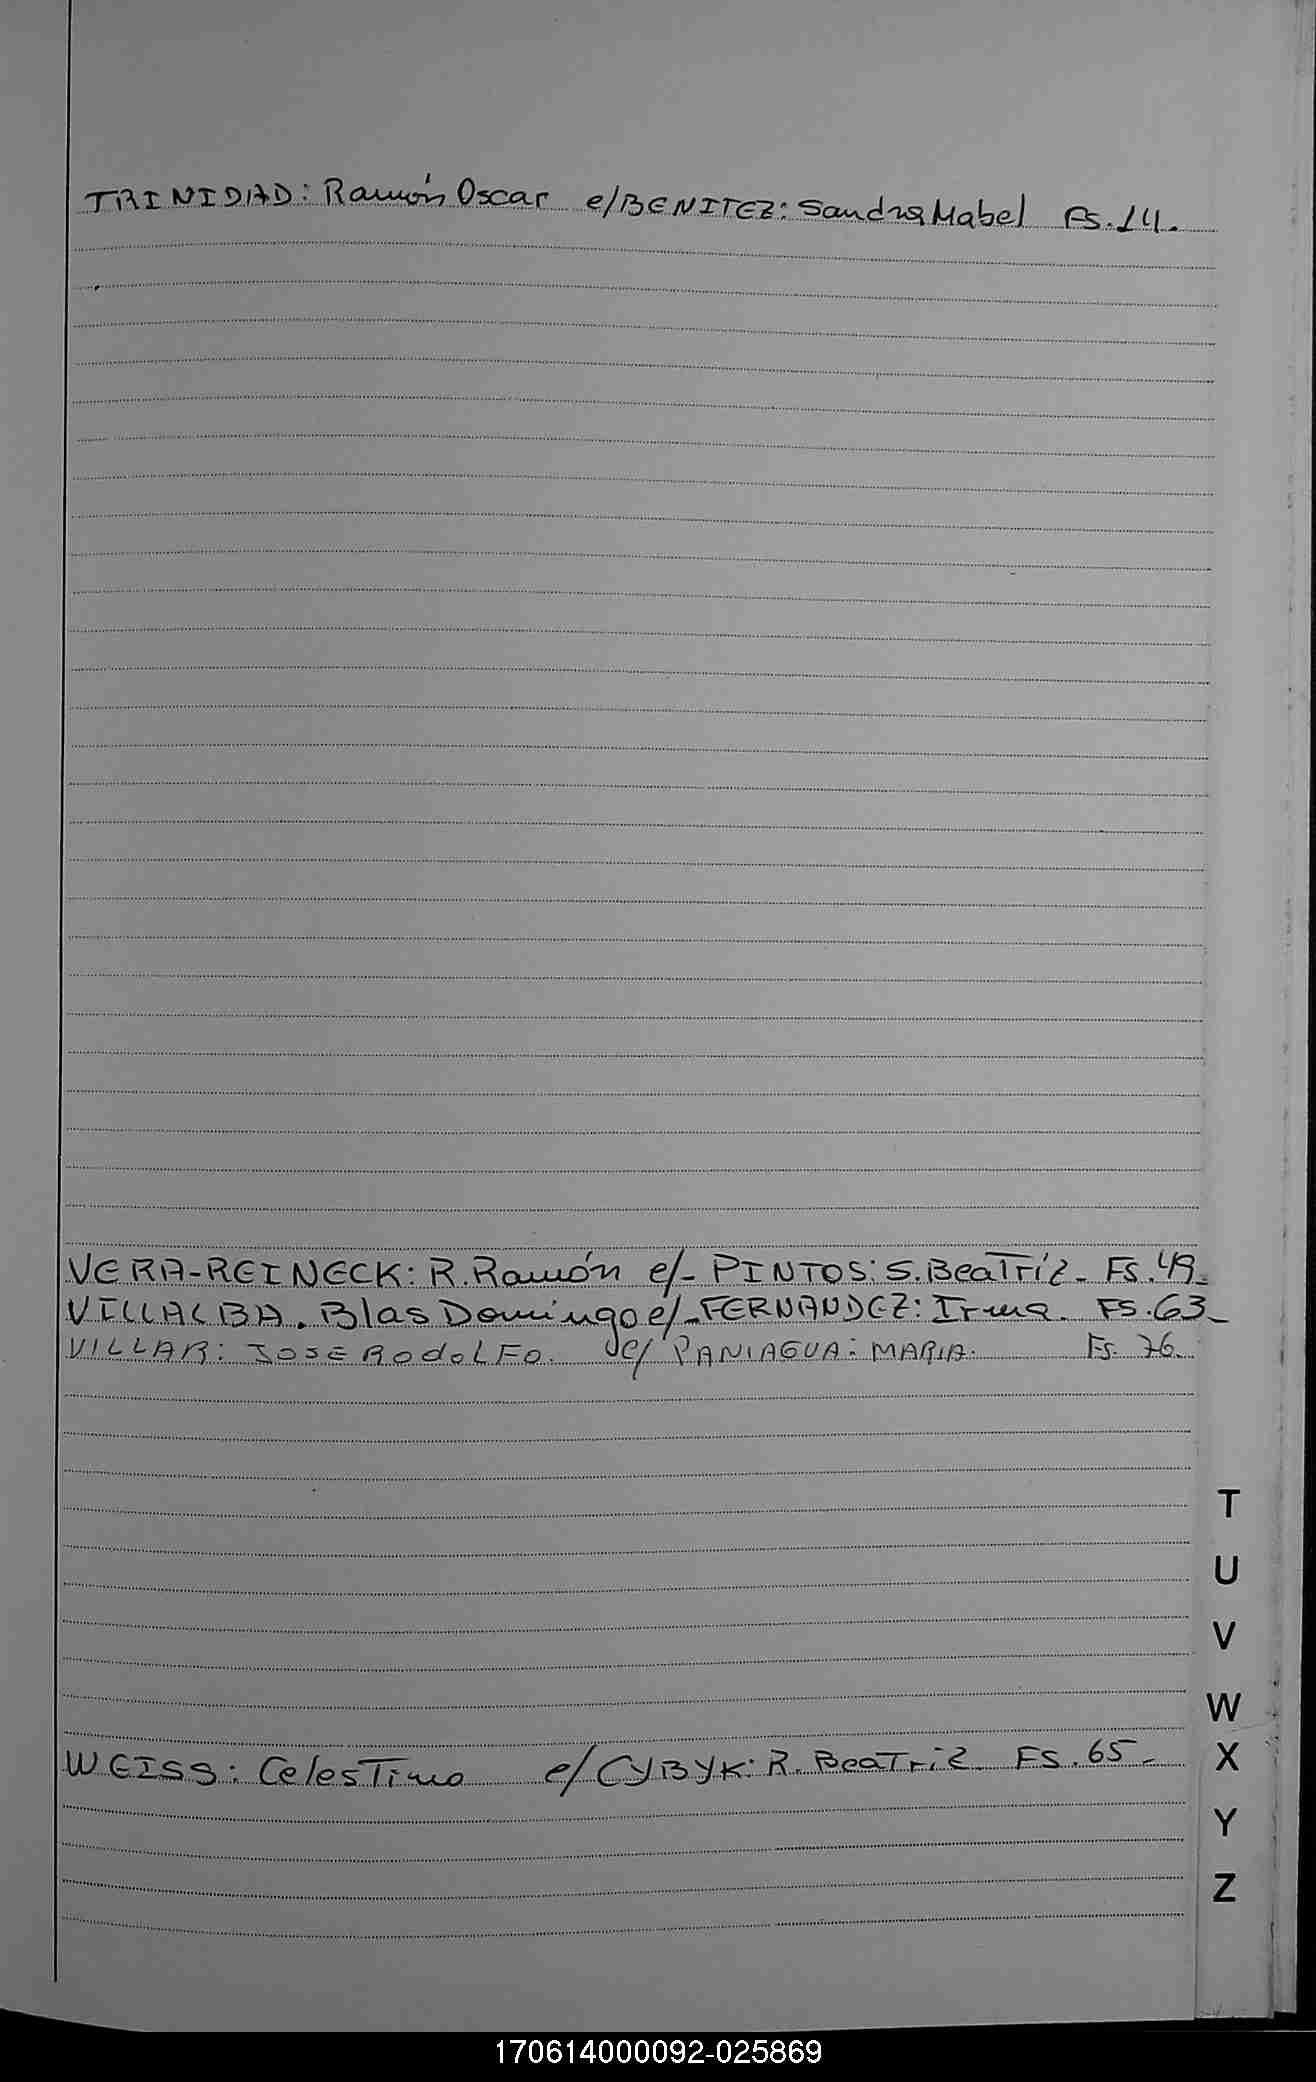 TRINIDAD: Ramón Oscar e/BENITEZ: Sandra Mabel Fs. 14.
VERA-REINECK: R. Ramón e/- PINTOS: S. Beatriz - Fs. 49.-
VILLALBA. Blas Domingo e/- FERNANDEZ: Irma. Fs. 63-
VILLAR: JOSE RODOLFO. e/ PANIAGUA: MARIA. Fs. 76.
T
U
V
W
WEISS: Celestino e/ CYBYK: R. Beatriz. Fs. 65-
X
Y
Z
170614000092-025869